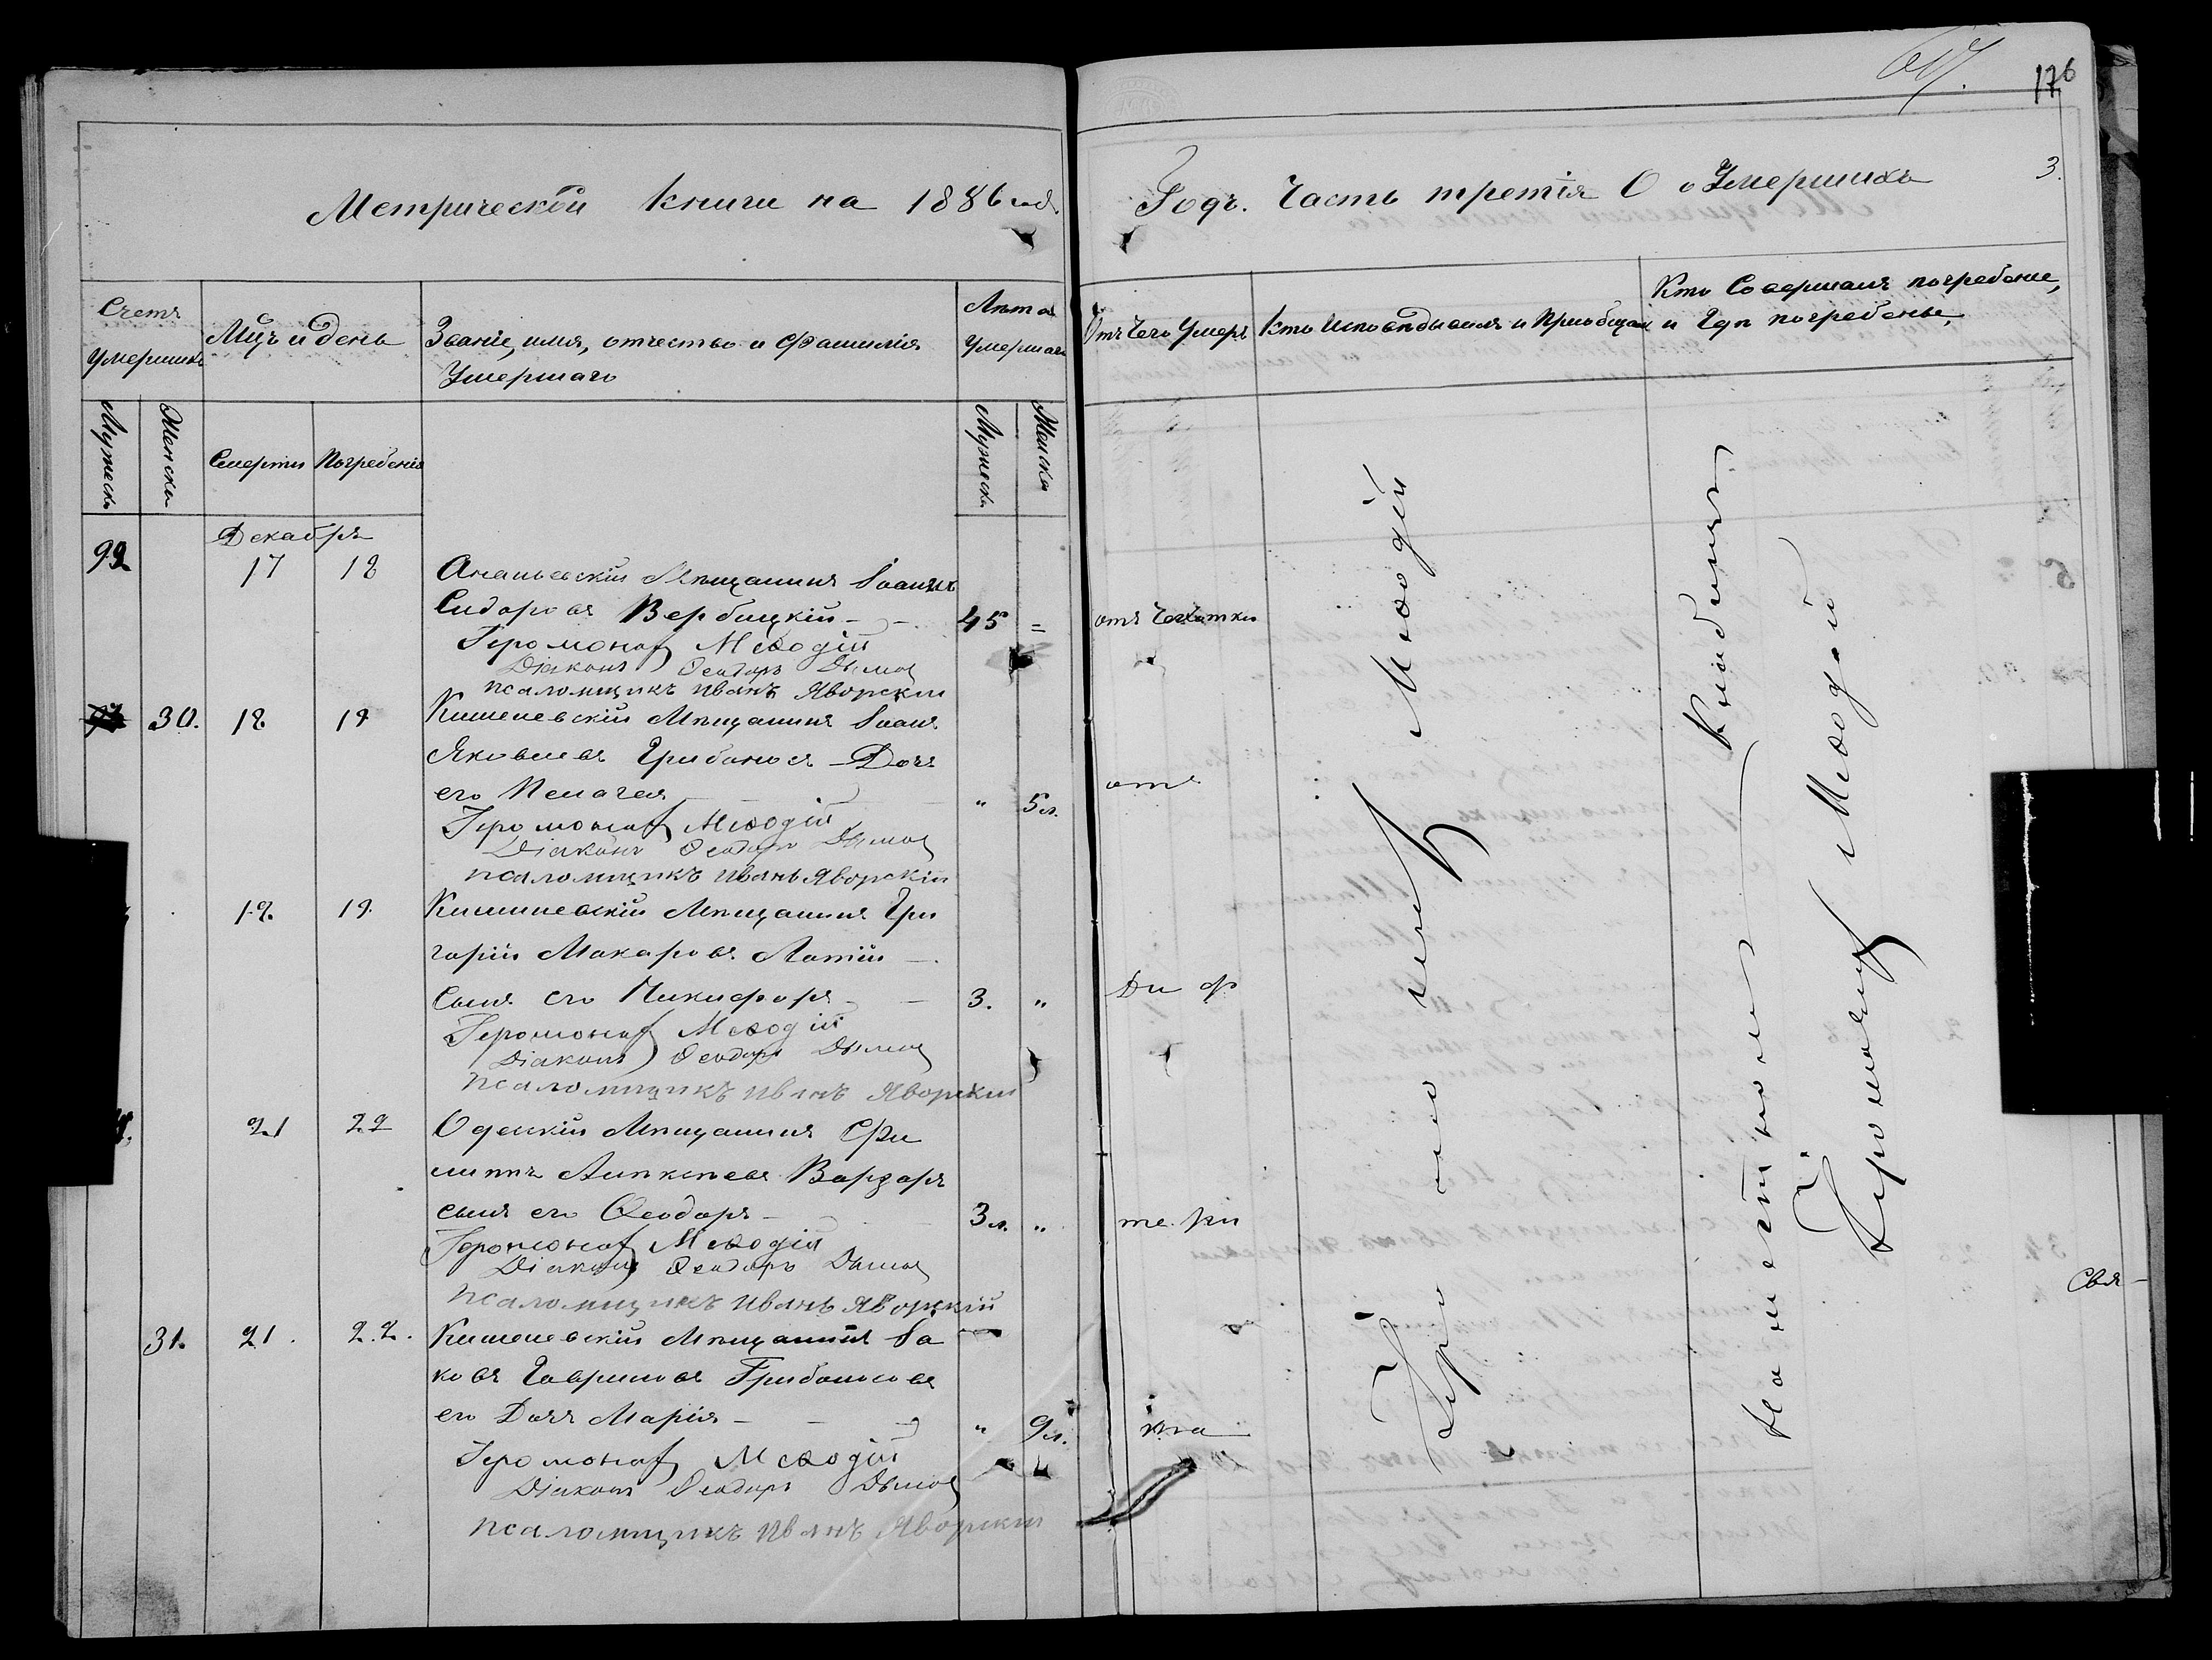 176
Метрической книги на 1886 год.
Годъ. Часть третія О умершихъ
3.
Счетъ умершихъ
Мцъ и день
Званіе, имя, отчество и фамилія
Умершаго
Лѣта
Умершаго
Отъ чего умеръ
Кто исповѣдывалъ и пріобщалъ
Кто совершалъ погребеніе,
и гдѣ погребены
Мужеска
Женска
Смерти
Погребенія
Мужеска
Женска
Декабрь
17
18
Ананьевскій Мѣщанинъ Іоаннъ
Сидоровъ Вербицкій
45
=
отъ чахотки
Іеромонах Меѳодій
Діаконъ Ѳеодоръ
псаломщикъ Иванъ Яворскій
30.
18
19
Кишеневскій Мѣщанинъ Іоанъ
Яковлевъ Грибановъ Дочь
его Пелагея
"
5 л.
отъ
Іеромонах Меѳодій
Діаконъ Ѳеодоръ
псаломщикъ Иванъ Яворскій
18
19.
Кишиневскій Мѣщанинъ Гри
горій Макаровъ
сынъ его Никифоръ
3.
"
Ди ф
Іеромонах Меѳодій
Діаконъ Ѳеодоръ
псаломщикъ Иванъ Яворскій
21
22
Одескій Мѣщанинъ Фи
липпъ Алексѣевъ
сынъ его Ѳеодоръ
3 л.
"
те ри
Іеромонах Меѳодій
Діаконъ Ѳеодоръ
псаломщикъ Иванъ Яворскій
31.
21.
22.
Кишеневскій Мѣщанинъ Іа
ковъ Гавриловъ
его Дочь Марія
"
9 л.
Іеромонах Меѳодій
Діаконъ Ѳеодоръ
псаломщикъ Иванъ Яворскій
Іеромонах Меѳодій
Іеромонах Меѳодій
Свя-